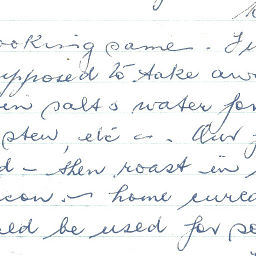 ooking same. Fu
upposed to take aw
in salt & water for
stew, etc —. Our f
d — then roast in
con. — home cured
uld be used for so